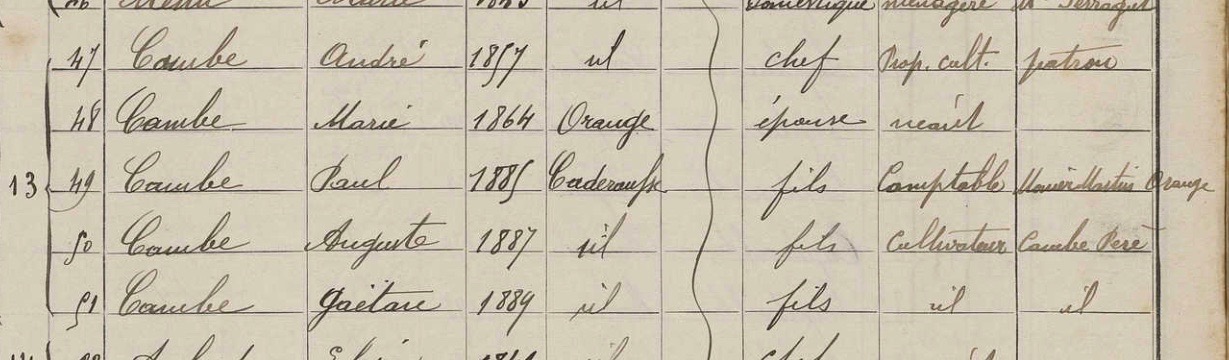 Marie domestique ménagère Mr
47 Cambe André 1857 id chef Prop. cult. patron
48 Cambe Marie 1864 Orange épouse néant
13 49 Cambe Paul 1885 Caderousse fils Comptable Monier Martin Orange
50 Cambe Auguste 1887 id fils Cultivateur Cambe Père
51 Cambe Gaëtan 1889 id fils id id